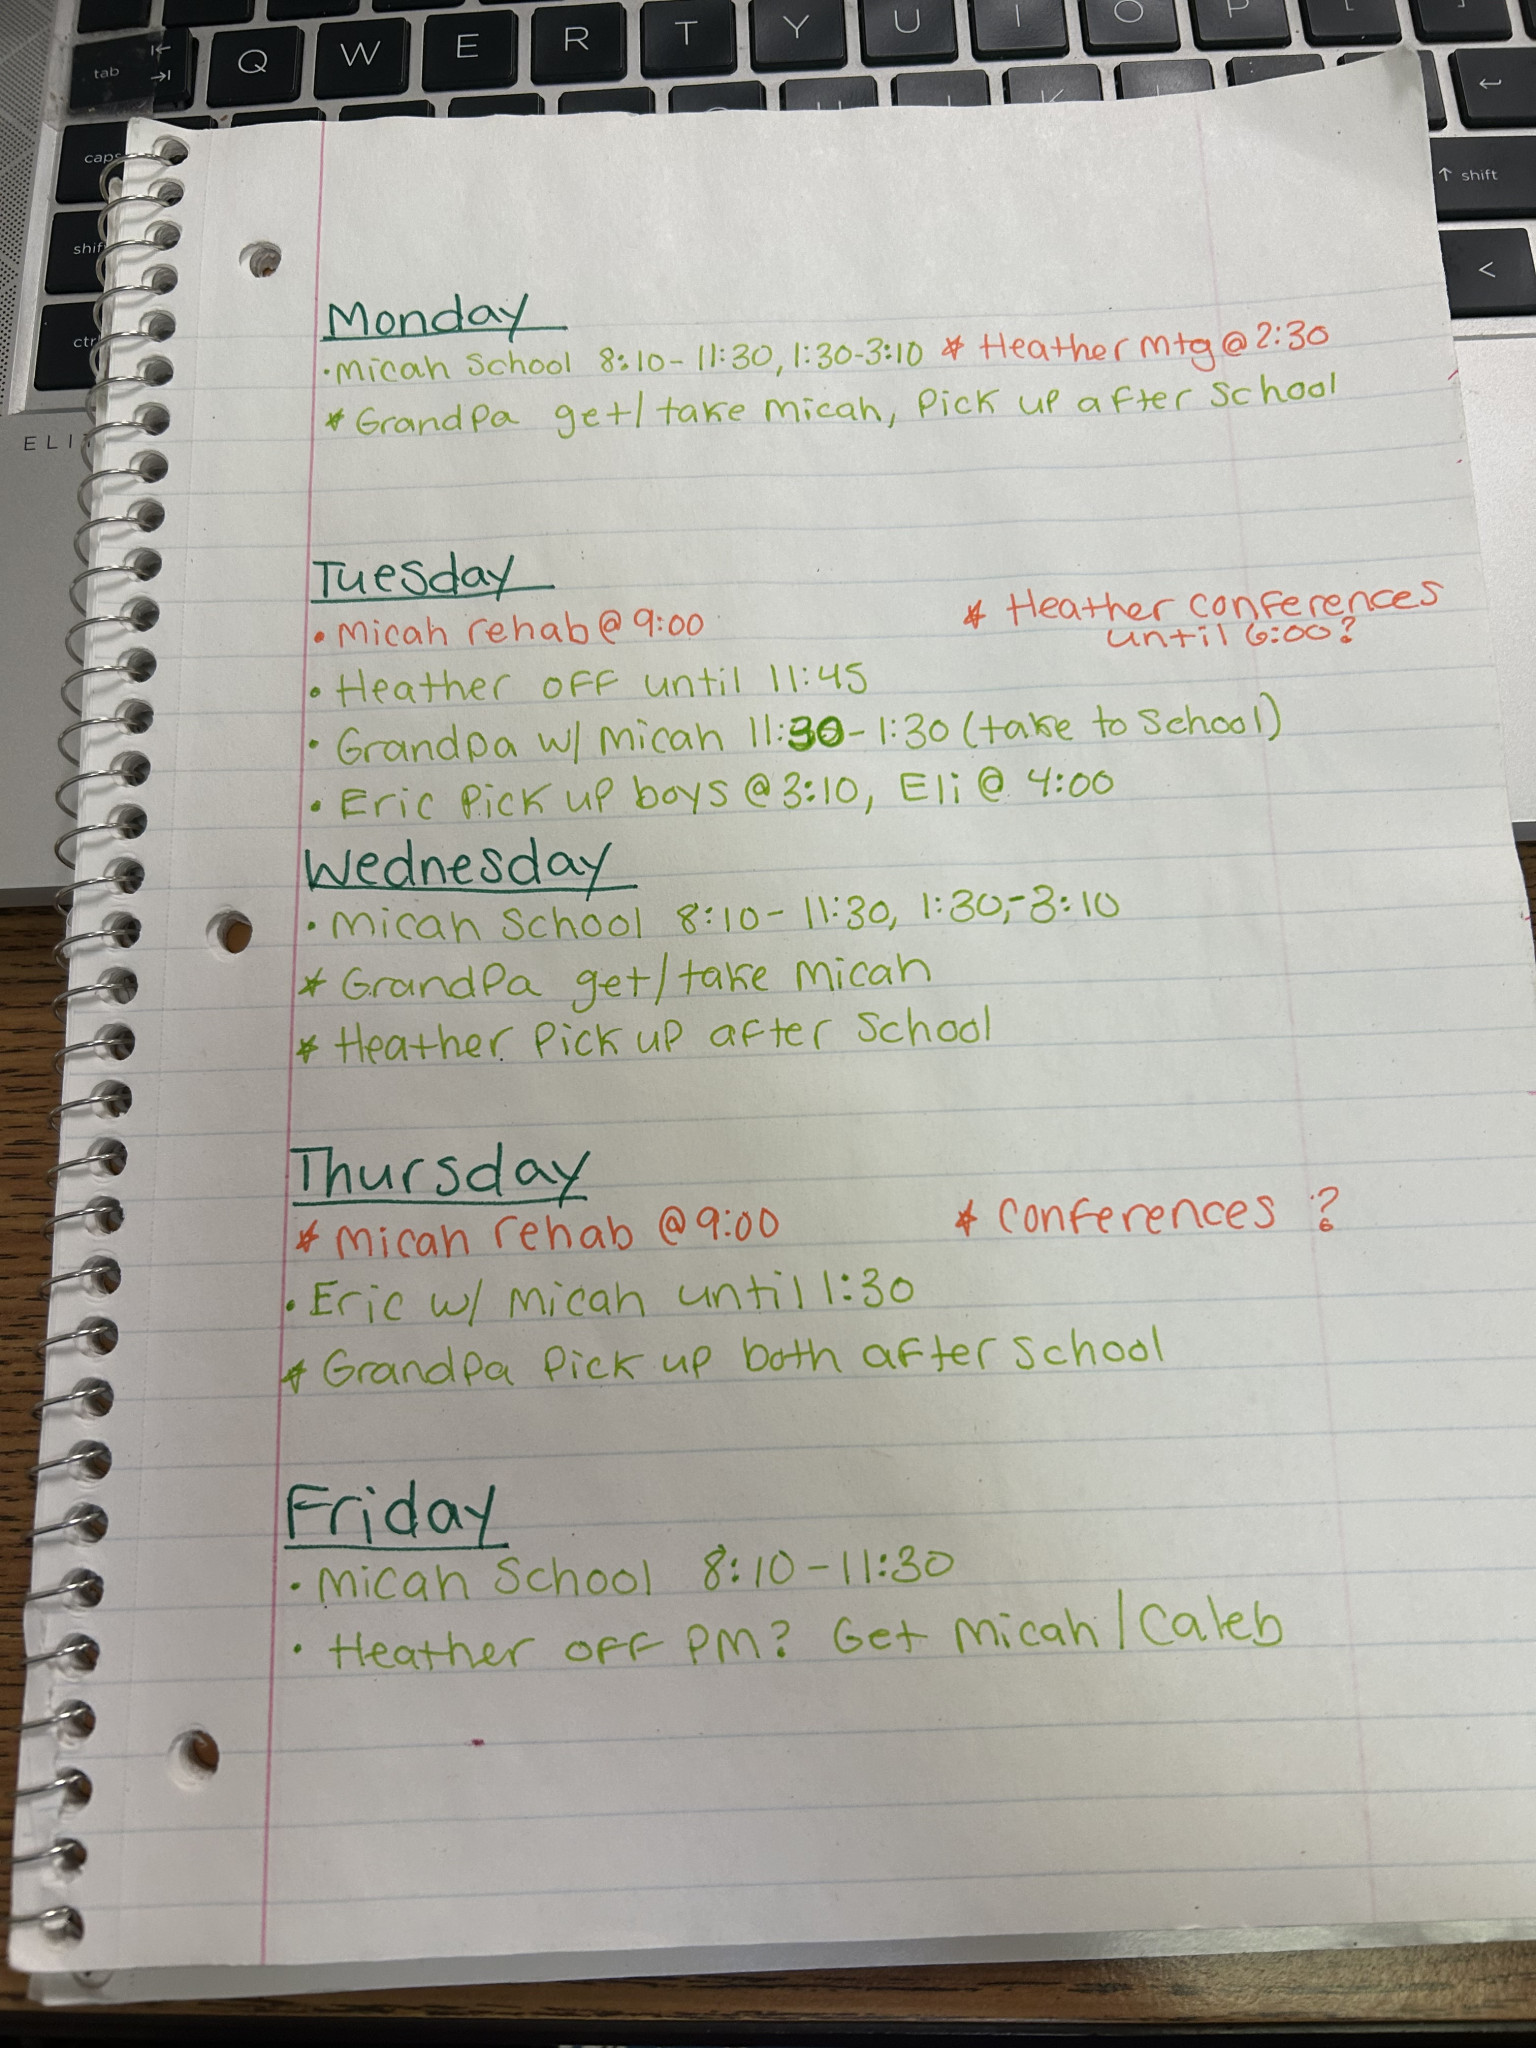 tab
Q W E R T Y U I O P
caps
shift
↑ shift
<
ctrl
ELI
Monday
• Micah School 8:10-11:30, 1:30-3:10 * Heather mtg @ 2:30
* Grandpa get/take Micah, Pick up after school
Tuesday
• Micah rehab @ 9:00 * Heather conferences
until 6:00?
• Heather off until 11:45
• Grandpa w/ Micah 11:30-1:30 (take to school)
• Eric Pick up boys @ 3:10, Eli @ 4:00
Wednesday
• Micah School 8:10-11:30, 1:30,-3:10
* Grandpa get/take Micah
* Heather Pick up after School
Thursday
* Micah rehab @ 9:00 * Conferences ?
• Eric w/ Micah until 1:30
* Grandpa Pick up both after school
Friday
• Micah School 8:10-11:30
• Heather off PM? Get Micah/Caleb